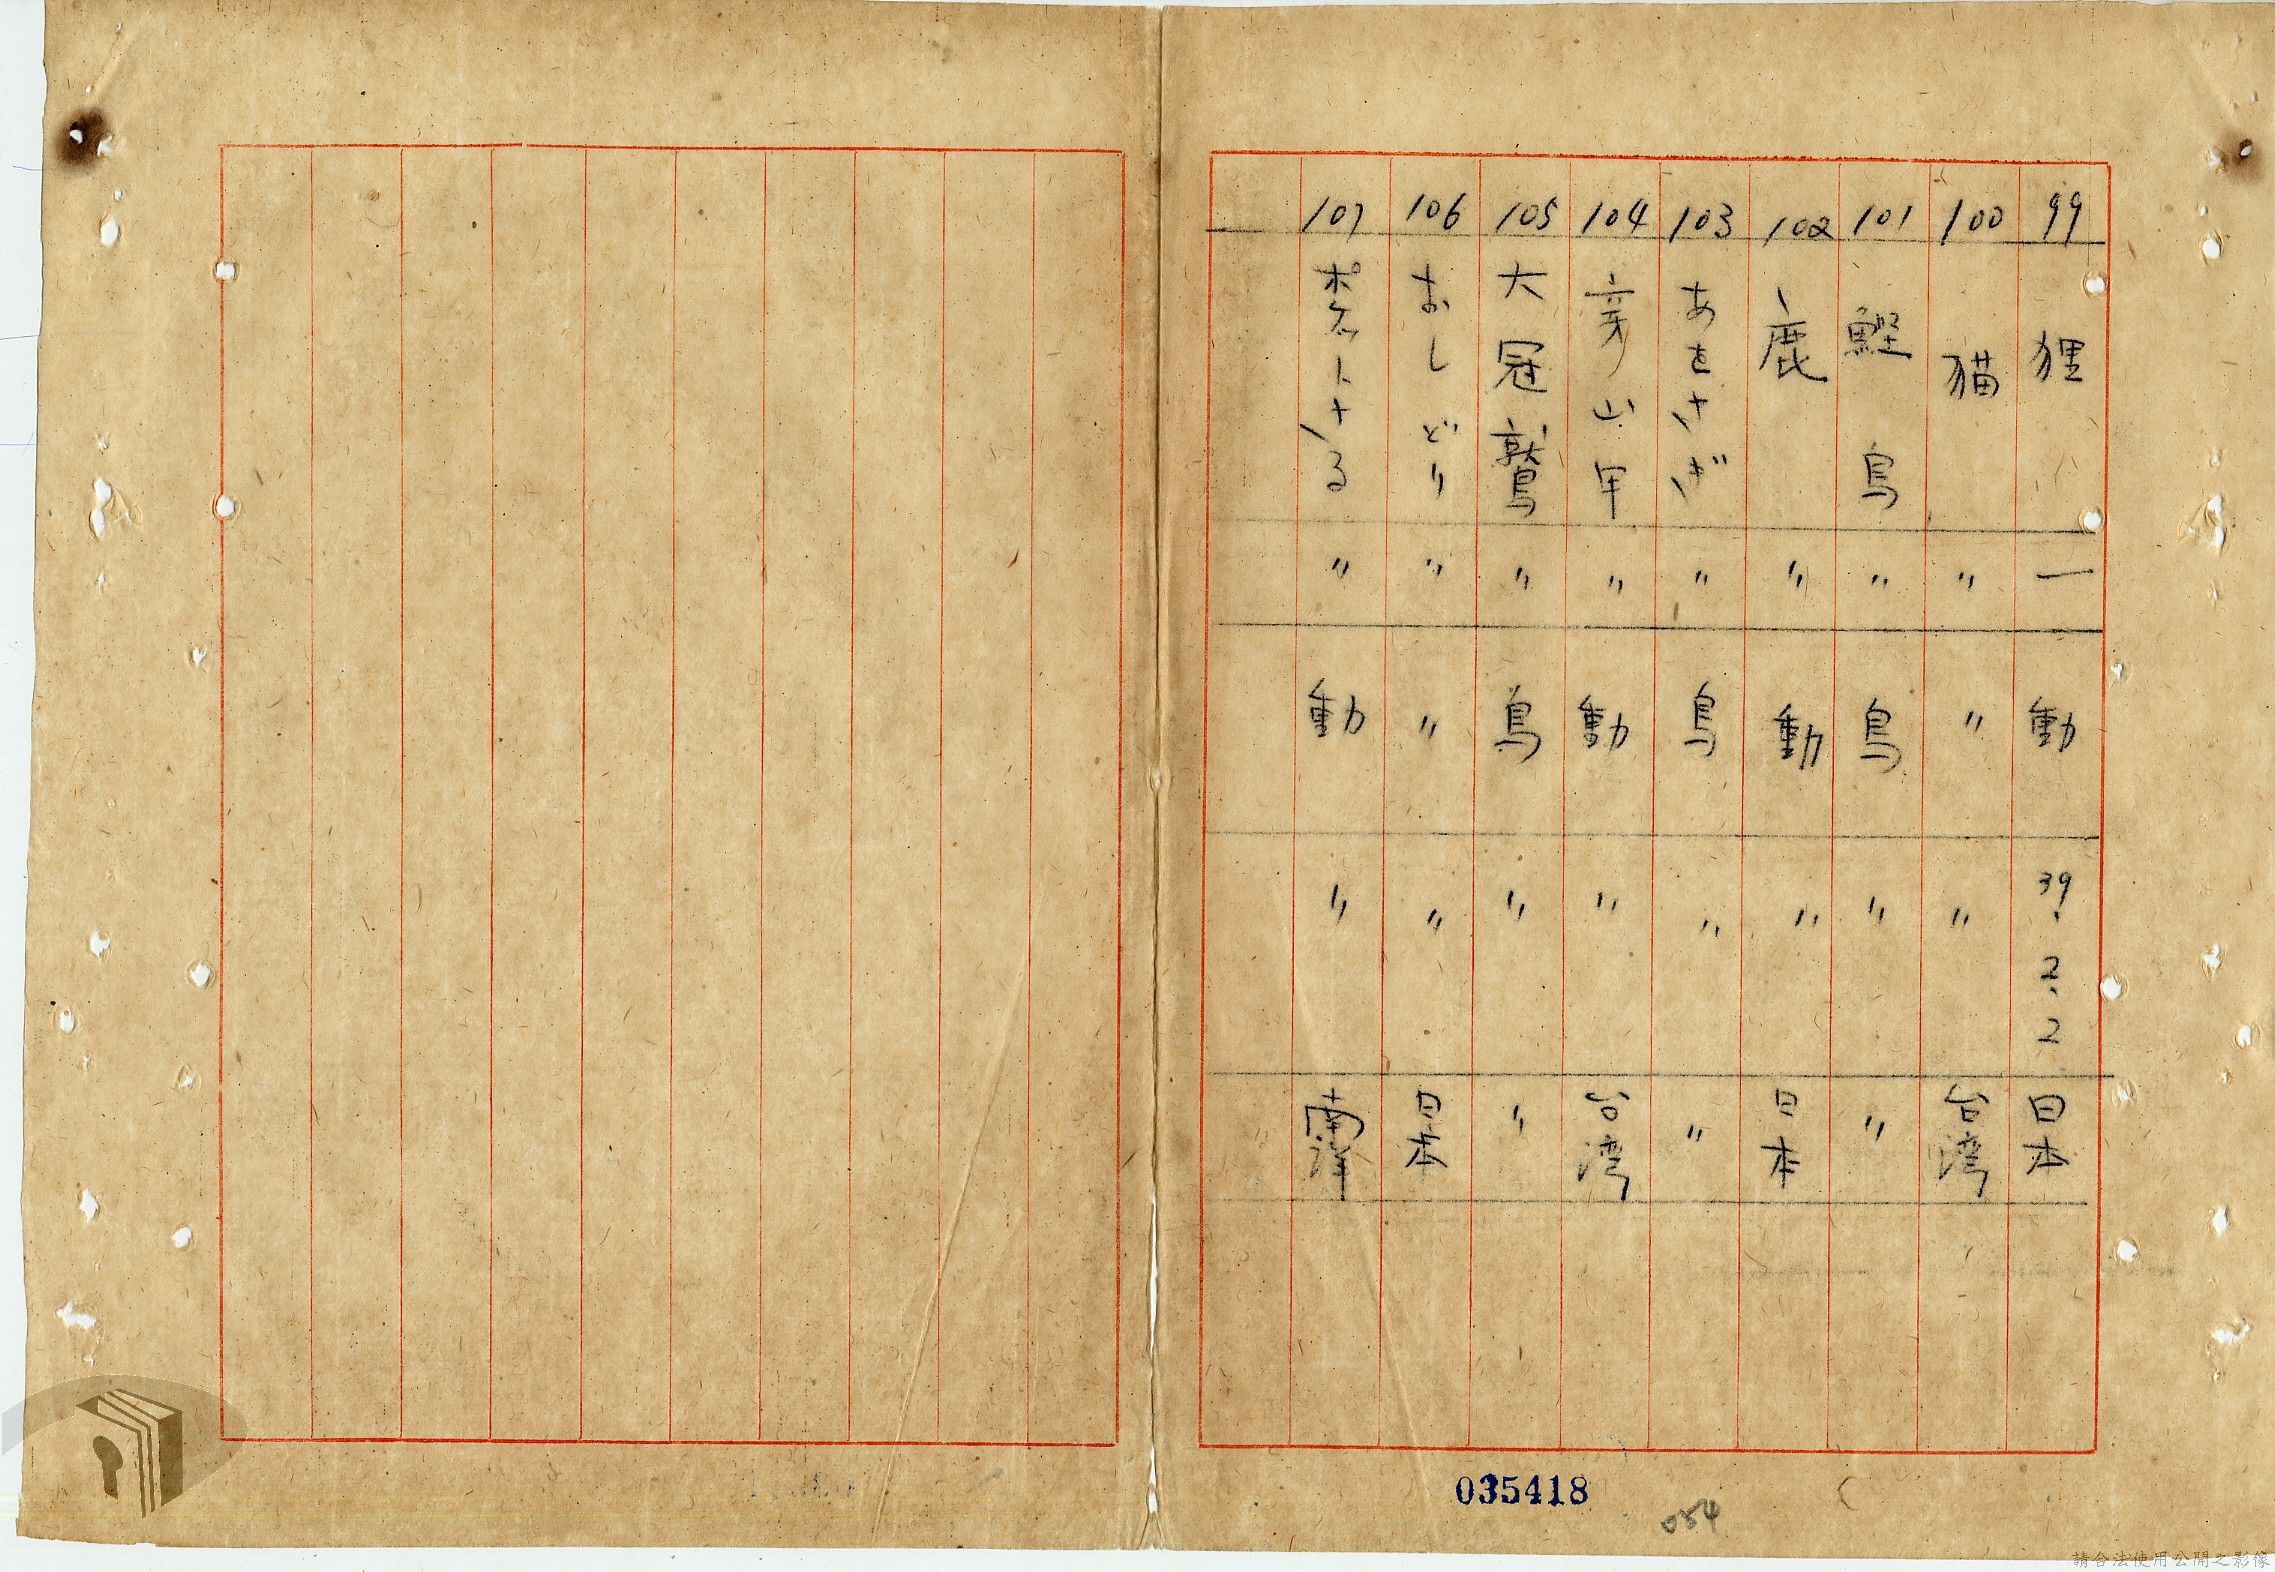 99 狸 一 動 39.2.2 日本
100 猫 〃 〃 〃 台湾
101 鰹鳥 〃 鳥 〃 〃
102 鹿 〃 動 〃 日本
103 あをさぎ 〃 鳥 〃 〃
104 穿山甲 〃 動 〃 台湾
105 大冠鷲 〃 鳥 〃 〃
106 おしどり 〃 〃 〃 日本
107 ポケットさる 〃 動 〃 南洋
035418
054
請合法使用公開之影像